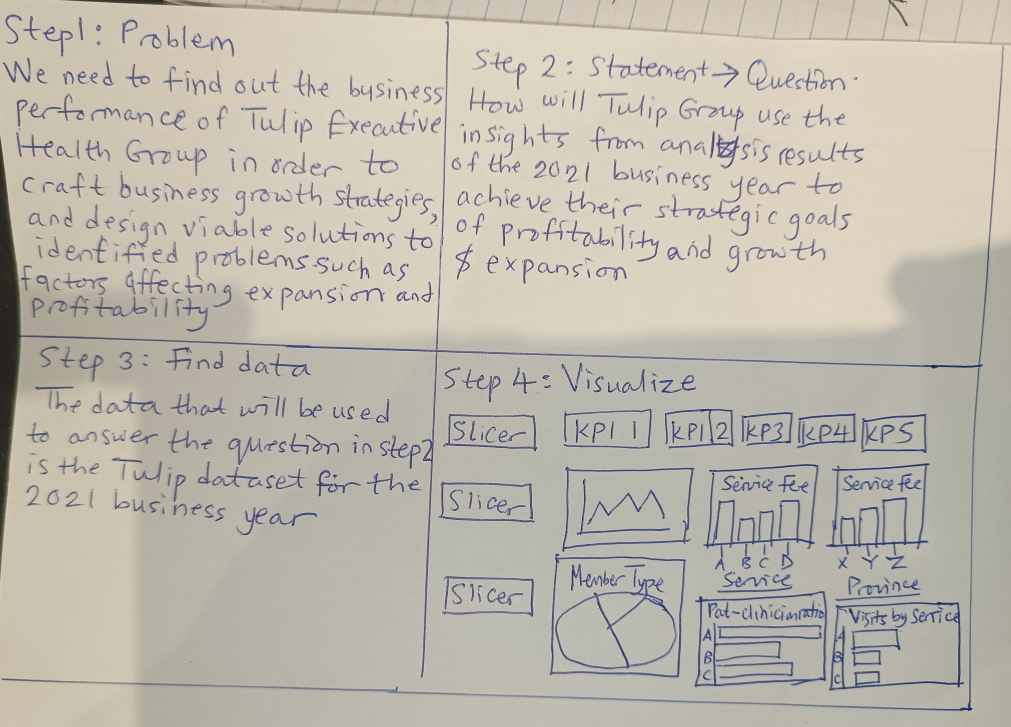 Step1: Problem
We need to find out the business
performance of Tulip Executive
Health Group in order to
craft business growth strategies,
and design viable solutions to
identified problems such as
factors affecting expansion and
profitability
Step 2: Statement → Question.
How will Tulip Group use the
insights from analysis results
of the 2021 business year to
achieve their strategic goals
of profitability and growth
$ expansion
Step 3: Find data
The data that will be used
to answer the question in step2
is the Tulip dataset for the
2021 business year
Step 4: Visualize
Slicer KPI 1 KPI 2 KP3 KP4 KP5
Slicer
Service Fee
A B C D
Service
Service fee
X Y Z
Province
Slicer
Member Type
Pat-clinician ratio
A
B
C
Visits by Service
A
B
C